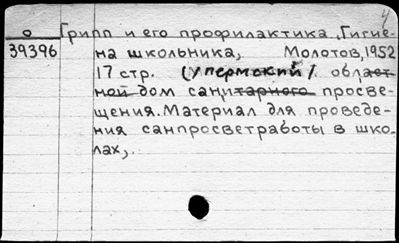 4
о Грипп и его профилактика. Гигие-
39396 на школьника, Молотов, 1952
17 стр. (Упермский). област-
ной дом санитарного просве-
щения. Материал для проведе-
ния санпросветработы в шко-
лах,.